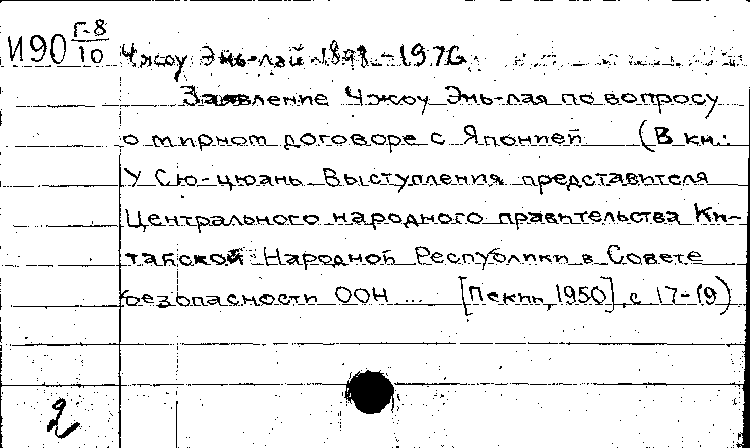 И90 Г-8/10
Чжоу Энь-лай 1898-1976
Заявление Чжоу Энь-лая по вопросу
о мирном договоре с Японией (В кн.:
У Сю-цюань. Выступления представителя
Центрального народного правительства Ки-
тайской Народной Республики в Совете
безопасности ООН ... [Пекин, 1950], с 17-19)
2